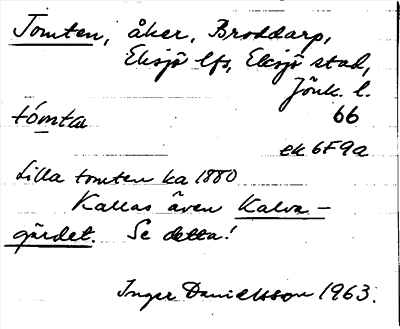 Tomten, åker, Broddarp,
Eksjö lfs, Eksjö stad,
Jönk. l.
tómta 66
ek 6F9a
Lilla tomten ka 1880
Kallas även Kalva-
gärdet. Se detta!
Inger Danielsson 1963.